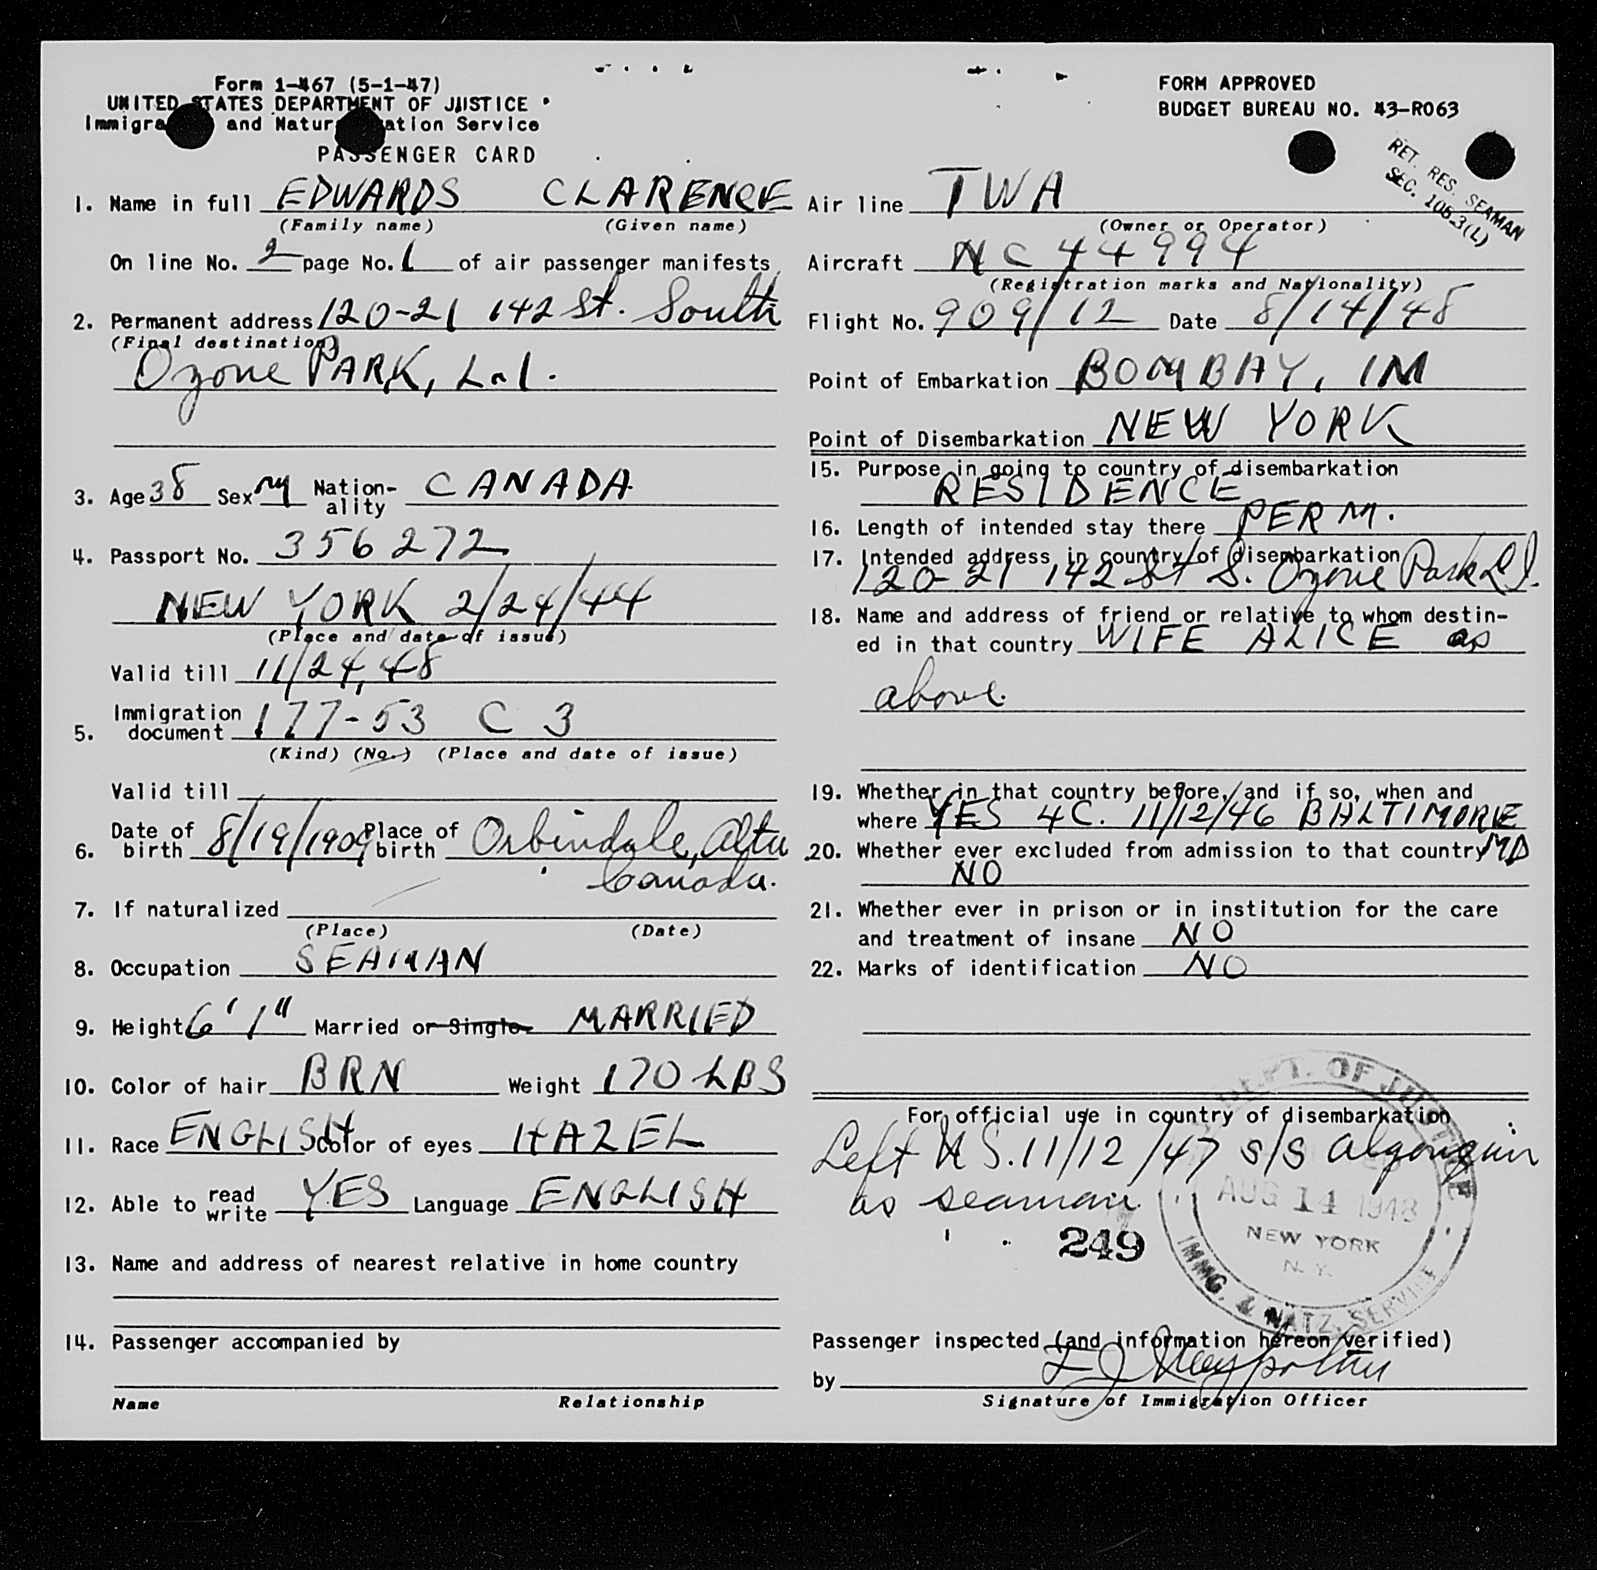 Form 1-467 (5-1-47)
UNITED STATES DEPARTMENT OF JUSTICE
Immigration and Naturalization Service
PASSENGER CARD
FORM APPROVED
BUDGET BUREAU NO. 43-R063
RET. RES. SEAMAN
SEC. 106.3(L)
1. Name in full EDWARDS CLARENCE
(Family name) (Given name)
On line No. 2 page No. 1 of air passenger manifests
2. Permanent address 120-21 142 St. South
(Final destination)
Ozone PARK, L.I.
3. Age 38 Sex M Nationality CANADA
4. Passport No. 356272
NEW YORK 2/24/44
(Place and date of issue)
Valid till 11/24, 48
5. Immigration document 177-53 C 3
(Kind) (No.) (Place and date of issue)
Valid till
6. Date of birth 8/19/1909 Place of birth Orbindale, Alta
Canada.
7. If naturalized
(Place) (Date)
8. Occupation SEAMAN
9. Height 6' 1" Married or Single MARRIED
10. Color of hair BRN Weight 170 LBS
11. Race ENGLISH Color of eyes HAZEL
12. Able to read write YES Language ENGLISH
13. Name and address of nearest relative in home country
14. Passenger accompanied by
Name Relationship
Air line TWA
(Owner or Operator)
Aircraft NC 44994
(Registration marks and Nationality)
Flight No. 909/12 Date 8/14/48
Point of Embarkation BOMBAY, IN
Point of Disembarkation NEW YORK
15. Purpose in going to country of disembarkation
RESIDENCE
16. Length of intended stay there PERM.
17. Intended address in country of disembarkation
120-21 142 St S. Ozone Park L I.
18. Name and address of friend or relative to whom destin-
ed in that country WIFE ALICE as
above.
19. Whether in that country before, and if so, when and
where YES 4C. 11/12/46 BALTIMORE
MD
20. Whether ever excluded from admission to that country
NO
21. Whether ever in prison or in institution for the care
and treatment of insane NO
22. Marks of identification NO
For official use in country of disembarkation
Left U S. 11/12/47 S/S Algonquin
as seaman
249
DEPT. OF JUSTICE
AUG 14 1948
NEW YORK
N. Y.
IMMG. & NATZ. SERVICE
Passenger inspected (and information hereon verified)
by
Signature of Immigration Officer